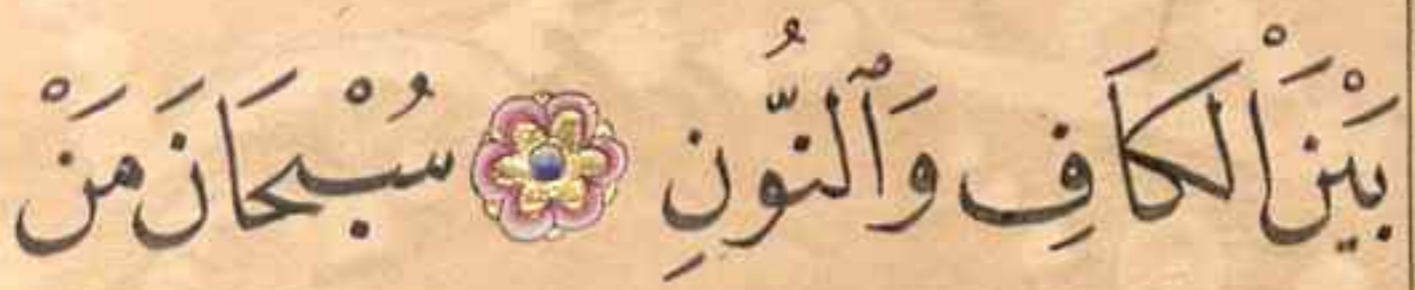 بَيْنَ الْكَافِ وَٱلنُّونِ سُبْحَانَ مَنْ